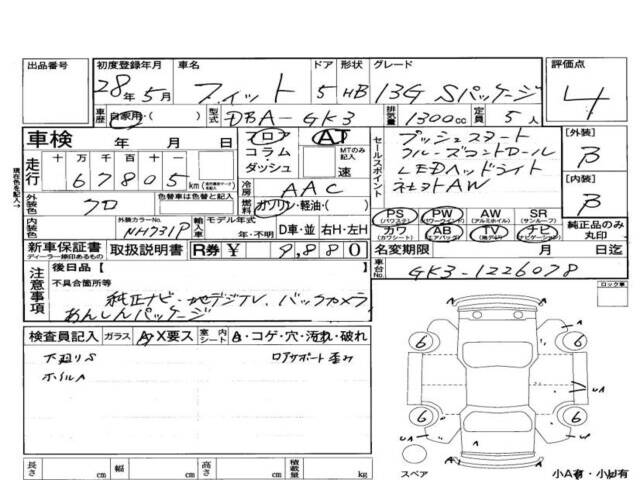 出品番号 初度登録年月 車名 ドア 形状 グレード 評価点
28年 5月 フィット 5 HB 13G Sパッケージ 4
車歴 自家用・( ) 型式 DBA-GK3 排気量 1300cc 定員 5人
車検 年 月 日 フロア AT セールスポイント プッシュスタート [外装]
コラム・ MTのみ記入 クルーズコントロール B
走行 十万千百十一 ダッシュ 速 LEDヘッドライト
67805km 冷房 AAC 社外AW [内装]
外装色 クロ 色替車は色替と記入 燃料 ガソリン・軽油・( ) B
PS (パワステ) PW (パワーウインド) AW (アルミホイル) SR (サンルーフ)
内装色 外装カラーNo. NH731P 輸入車 モデル年式 年・不明 D車・並 右H・左H カワ (カワシート) AB (エアバッグ) TV ナビ (ナビゲーション) 純正品のみ丸印
新車保証書 ディーラー捺印あるもの 取扱説明書 R券 ¥ 9,880 名変期限 月 日迄
注意事項 後日品【 】 車台No. GK3-1226078
不具合箇所等 ロック車
純正ナビ・地デジTV、バックカメラ
あんしんパッケージ
検査員記入 ガラス A・X要ス 室内シート A・コゲ・穴・汚れ・破れ
下廻りS
ホイルA
6 6
UA
6 6
A A
UA
A
長さ cm 幅 cm 高さ cm 積載量 kg スペア 小A有・小U有